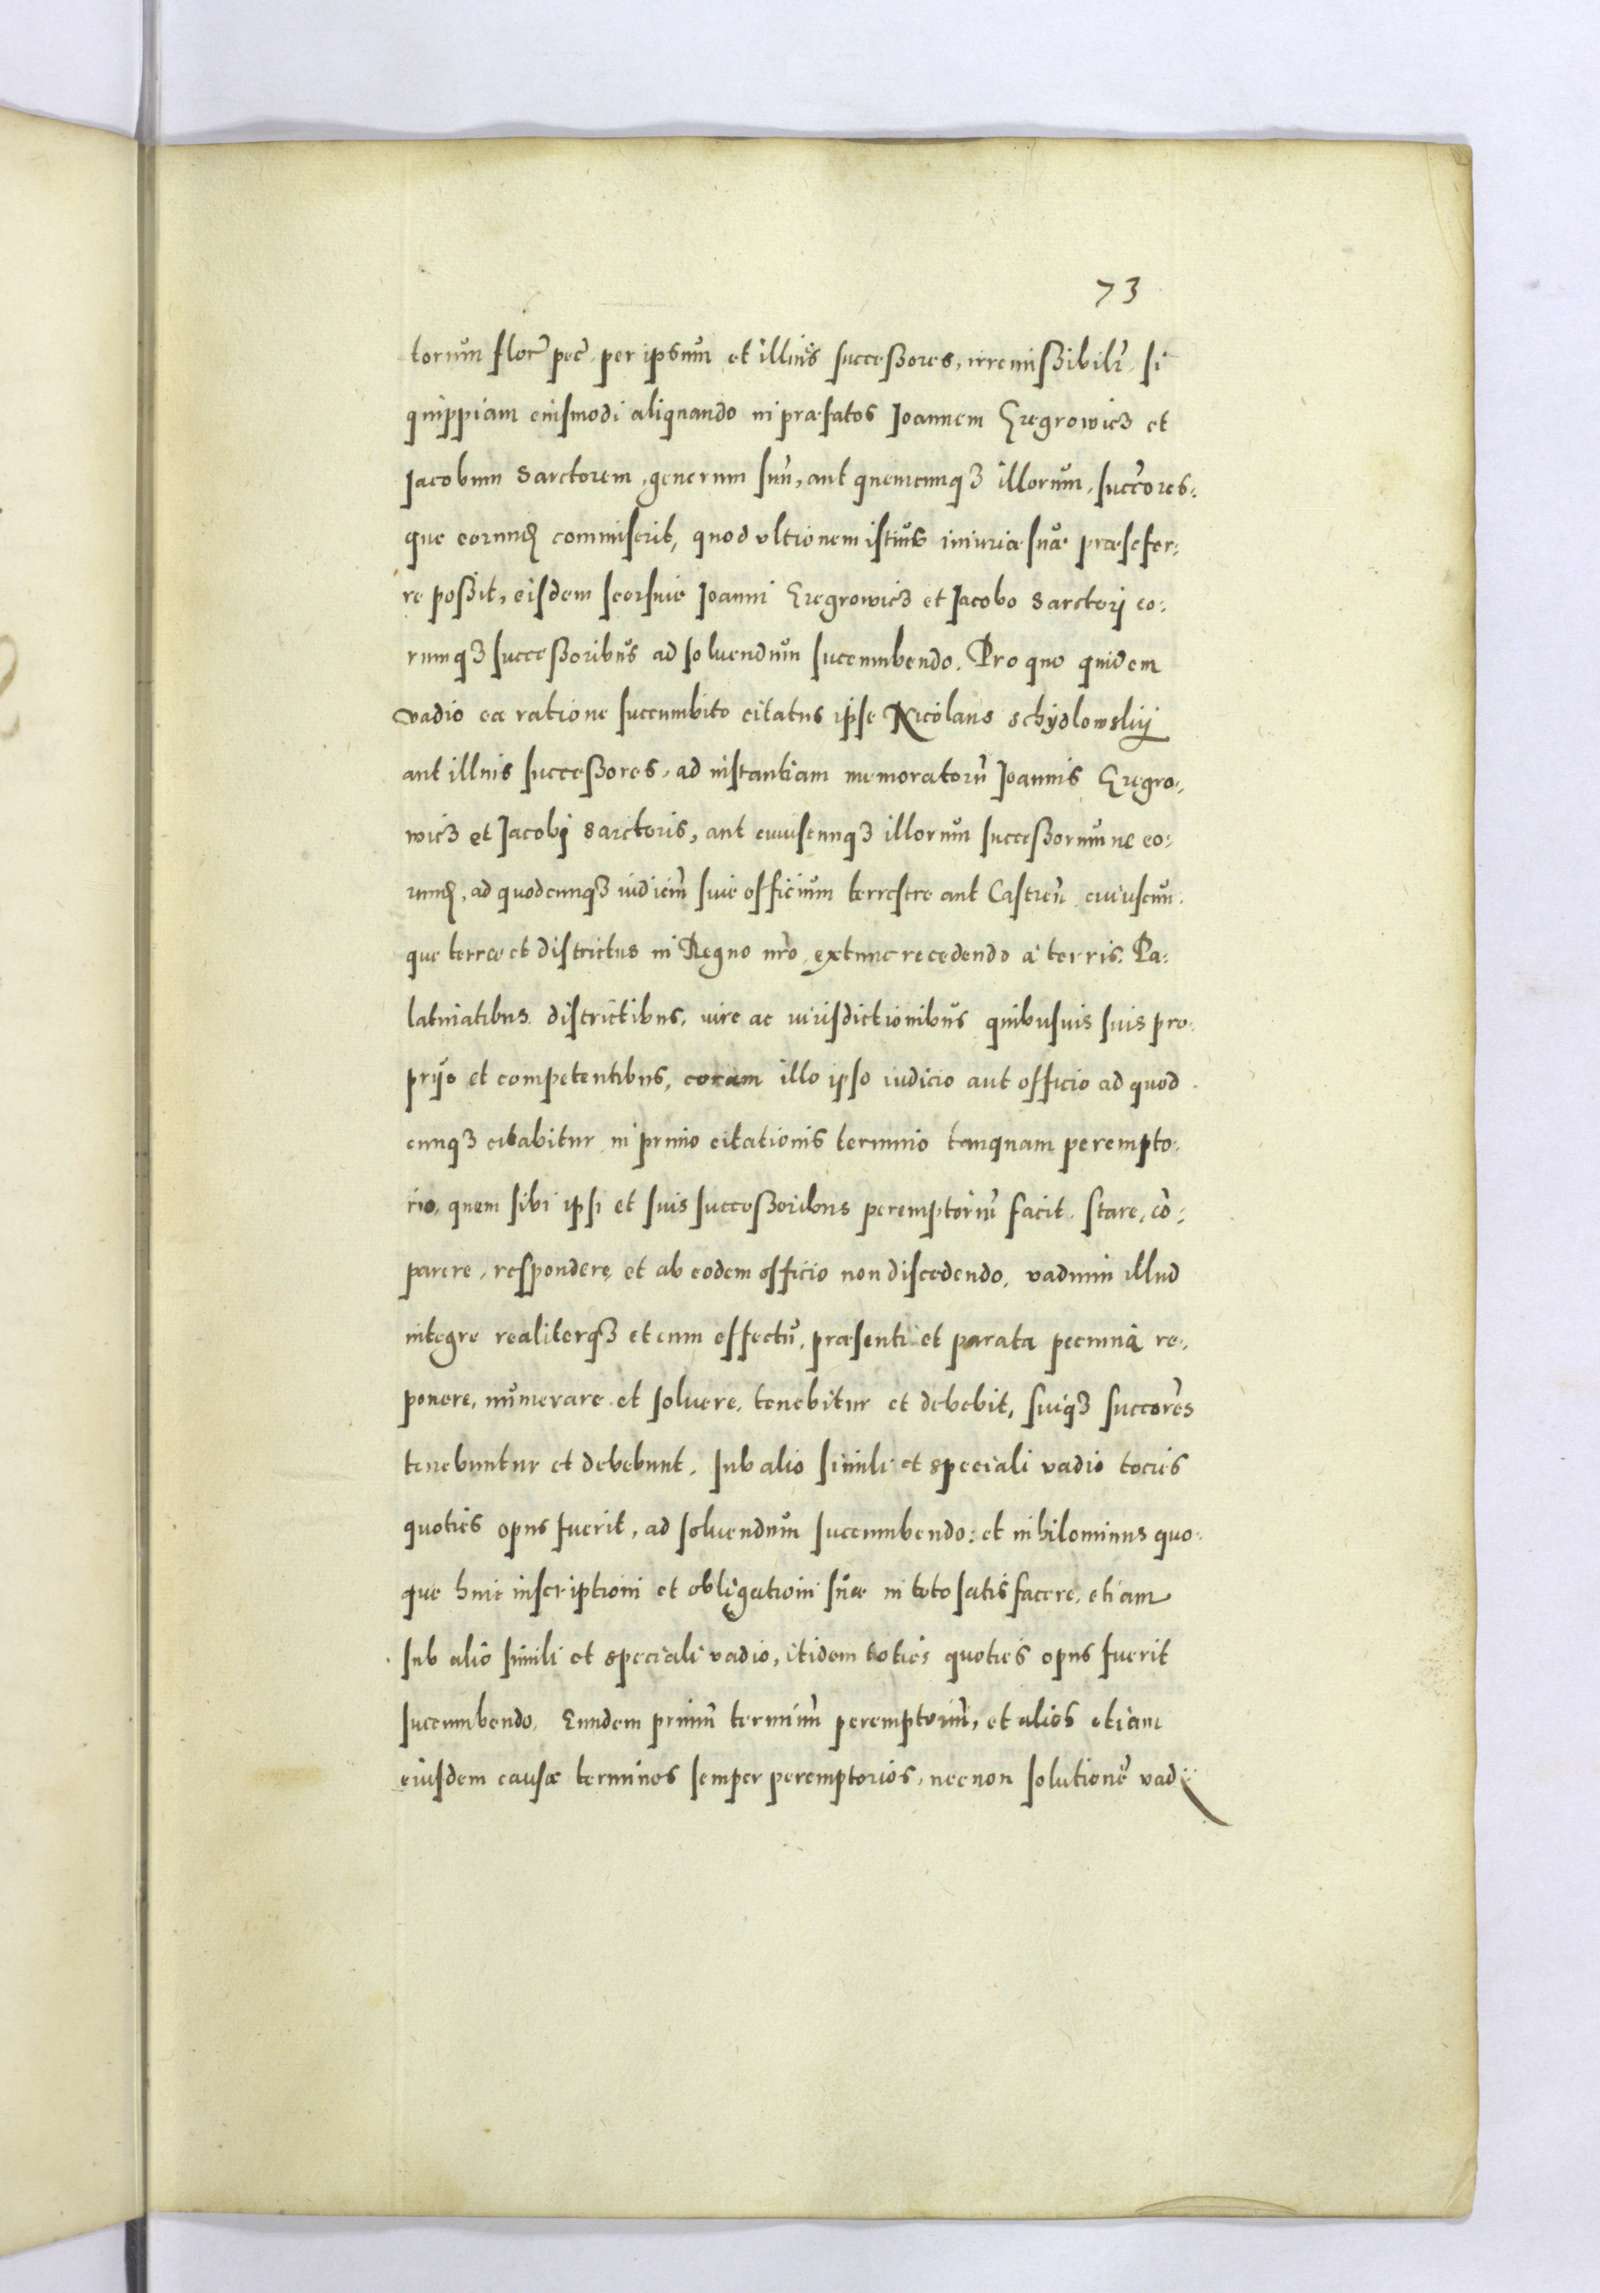 73
torum flor pec per ipsum et illius successores, irremissibilr, si
quippiam eiusmodi aliquando in præfatos Joannem Gregrowicz et
Jacobum Sarctorem, generum suu, aut quemcunq3 illorum, succores-
que eorund commiserit, quod ultionem istius iniuriæ suæ præsefer-
re possit, eisdem seorsive Joanni Gregrowicz et Jacobo Sarctorj eo-
rumq3 successoribus ad solvendum succumbendo. Pro quo quidem
vadio ea ratione succumbito citatus ipse Nicolaus Schydlowskij
aut illius successores, ad instantiam memoratoru Joannis Gregro-
wicz et Jacobj Sarctoris, aut cuiuscunq3 illorum successorumve eo-
rund, ad quodcunq3 iudiciu sive officium terrestre aut Castren cuiuscun-
que terræ et districtus in Regno nro, extunc recedendo à terris, Pa-
latinatibus districtibus, iure ac iurisdictionibus quibusvis suis pro-
prijs et competentibus, coram illo ipso iudicio aut officio ad quod
cunq3 citabitur in primo citationis termino tanquam perempto-
rio, quem sibi ipsi et suis successoribus peremptoriu facit, stare, cō-
parere, respondere, et ab eodem officio non discedendo, vadium illud
integre realiterq3 et cum effectu, præsenti et parata pecunia re-
ponere, numerare et solvere, tenebitur et debebit, suiq3 succores
tenebuntur et debebunt. sub alio simili et speciali vadio tocies
quoties opus fuerit, ad solvendum succumbendo: et nihilominus quo-
que huic inscriptioni et obligationi suæ in toto satisfacere, etiam
sub alio simili et speciali vadio, itidem toties quoties opus fuerit
succumbendo, Eundem primu terminu peremptoriu, et alios etiam
eiusdem causæ terminos semper peremptorios, necnon solutionē vadij